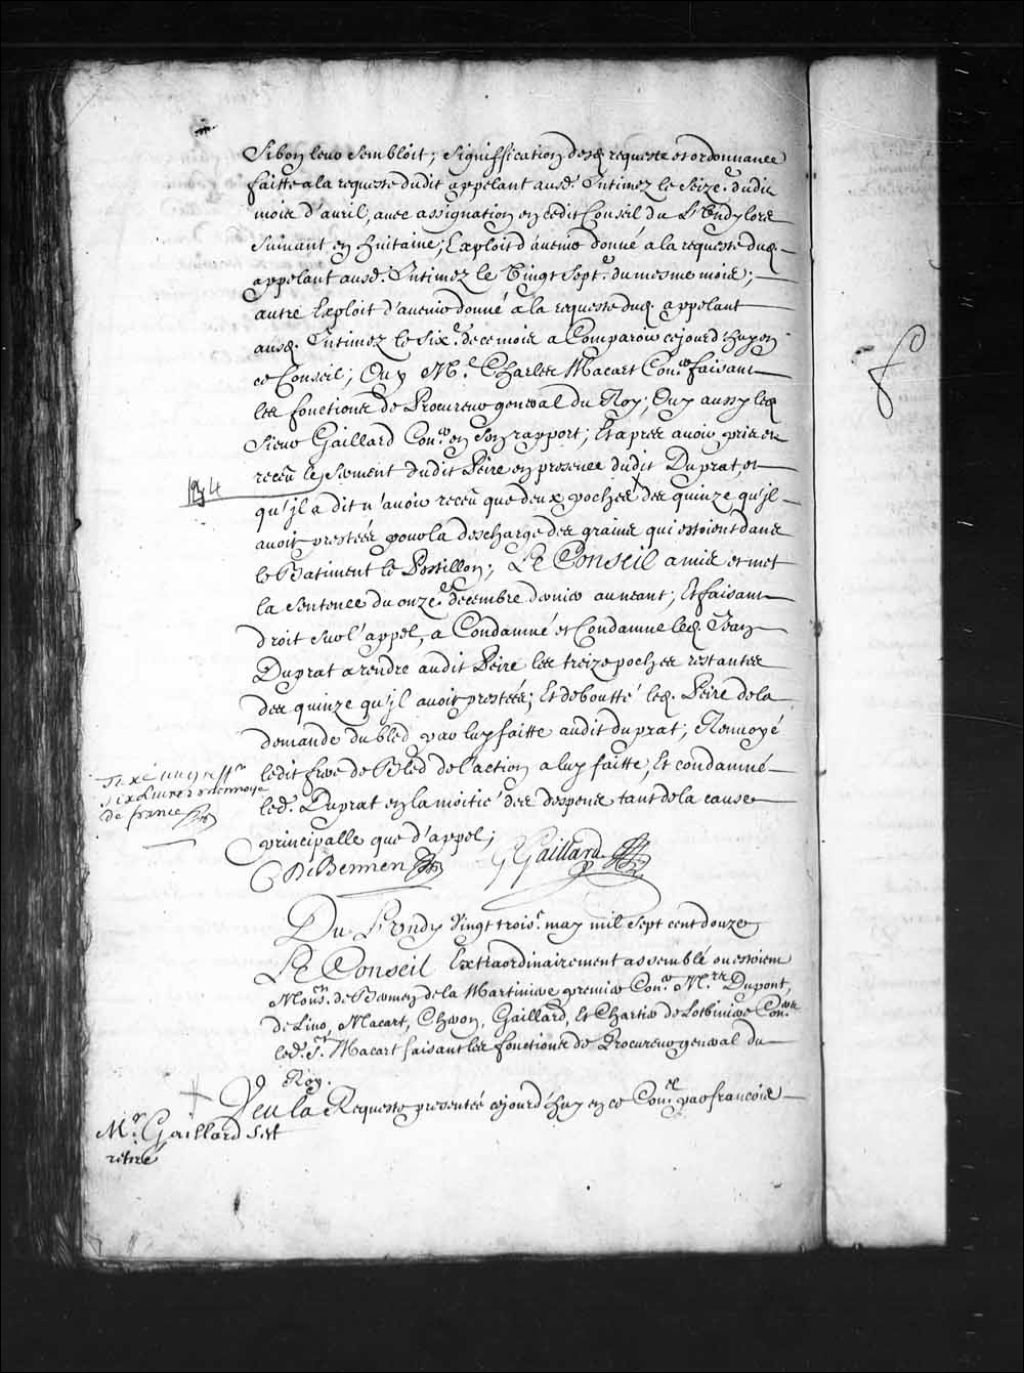 Sibon leur sembloit; Signiffication desd. requeste et ordonnance
faitte a la requeste dudit appelant ausd. Intimez le Seize.e dudit
mois d'avril, avec assignation en cedit Conseil du Lundy lors
suivant en huitaine; Exploit d'avenir donné a la requeste dud.
appelant ausd. Intimez le Vingt Sept.e du mesme mois;
autre Exploit d'avenir donné à la requeste dud. appelant
ausd. Intimez le Six.e de ce mois a Comparoir cejourd'huy en
ce Conseil; Ouy M.e Charles Macart Con.er faisant
les fonctions de Procureur general du Roy; Ouy aussy led.
Sieur Gaillard Con.er en Son rapport; Et apres avoir pris et
receu le Serment dudit Peire en presence dudit Duprat, et
qu'jl a dit n'avoir receu que deux poches des quinze qu'jl
avoit prestées pour la descharge des grains qui estoient dans
le Batiment le Postillon; Le Conseil a mis et met
la Sentence du onze.e decembre dernier au neant; Et faisant
droit Sur l'appel, a Condamné et Condamne led. Jean
Duprat a rendre audit Peire les treize poches restantes
des quinze qu'jl avoit prestées; Et deboutté led. Peire de la
demande du bled par luy faitte audit duprat; Renvoyé
ledit de Bled de l'action a luy faitte, Et condamné
led. Duprat en la moitié des despens tant de la cause
principalle que d'appel;
six Livres monnoye
de france
DeBermen GGaillard
Du Lundy Vingt trois.e may mil Sept cent douze
Le Conseil Extraordinairement assemblé ou estoient
Mons.r de Bermen de la Martiniere premier Con.er M.rs Dupont,
de Lino, Macart, Cheron, Gaillard, Et Chartier de Lotbiniere Con.ers
led. S.r Macart faisant les fonctions de Procureur general du
Roy.
Veu la Requeste presentée cejourd'huy en ce Con.el par francois
M.r Gaillard s'est
retiré